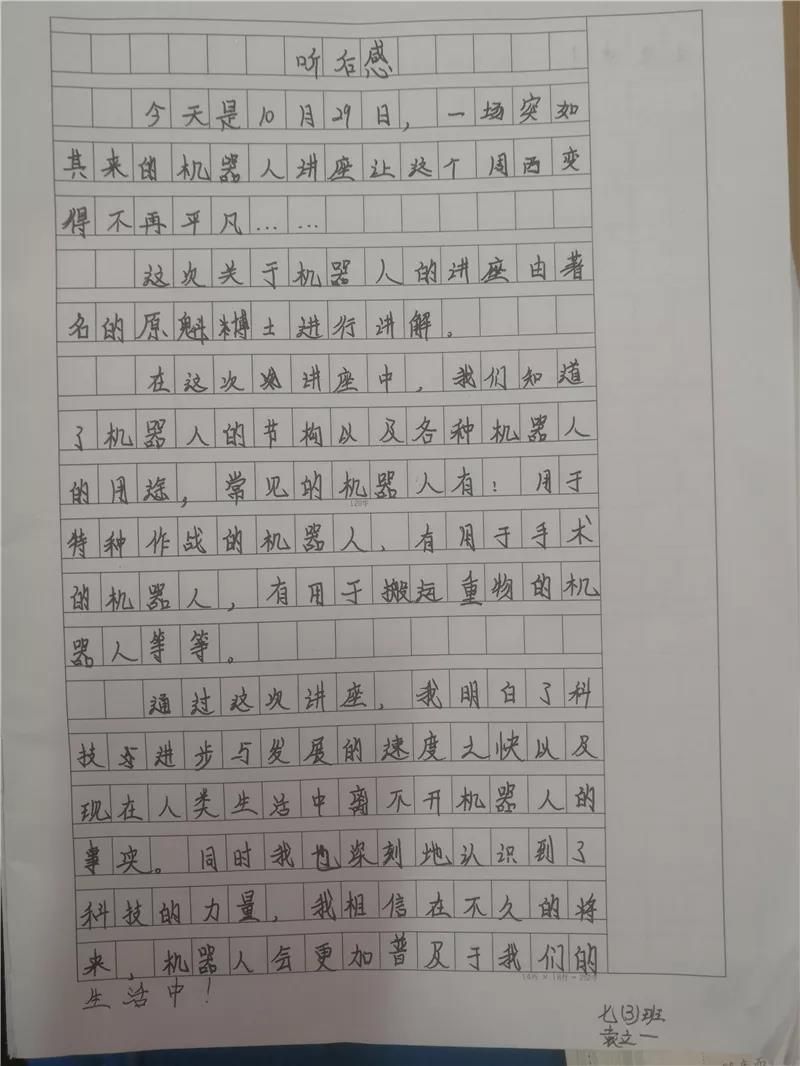 听后感
今天是10月29日，一场突如
其来的机器人讲座让这个周西变
得不再平凡……
这次关于机器人的讲座由著
名的原魁博士进行讲解。
在这次讲座中，我们知道
了机器人的节构以及各种机器人
的用途，常见的机器人有：用于
特种作战的机器人、有用于手术
的机器人，有用于搬运重物的机
器人等等。
通过这次讲座，我明白了科
技进步与发展的速度之快以及
现在人类生活中离不开机器人的
事实。同时我也深刻地认识到了
科技的力量，我相信在不久的将
来，机器人会更加普及于我们的
生活中！
七(3)班
袁立一